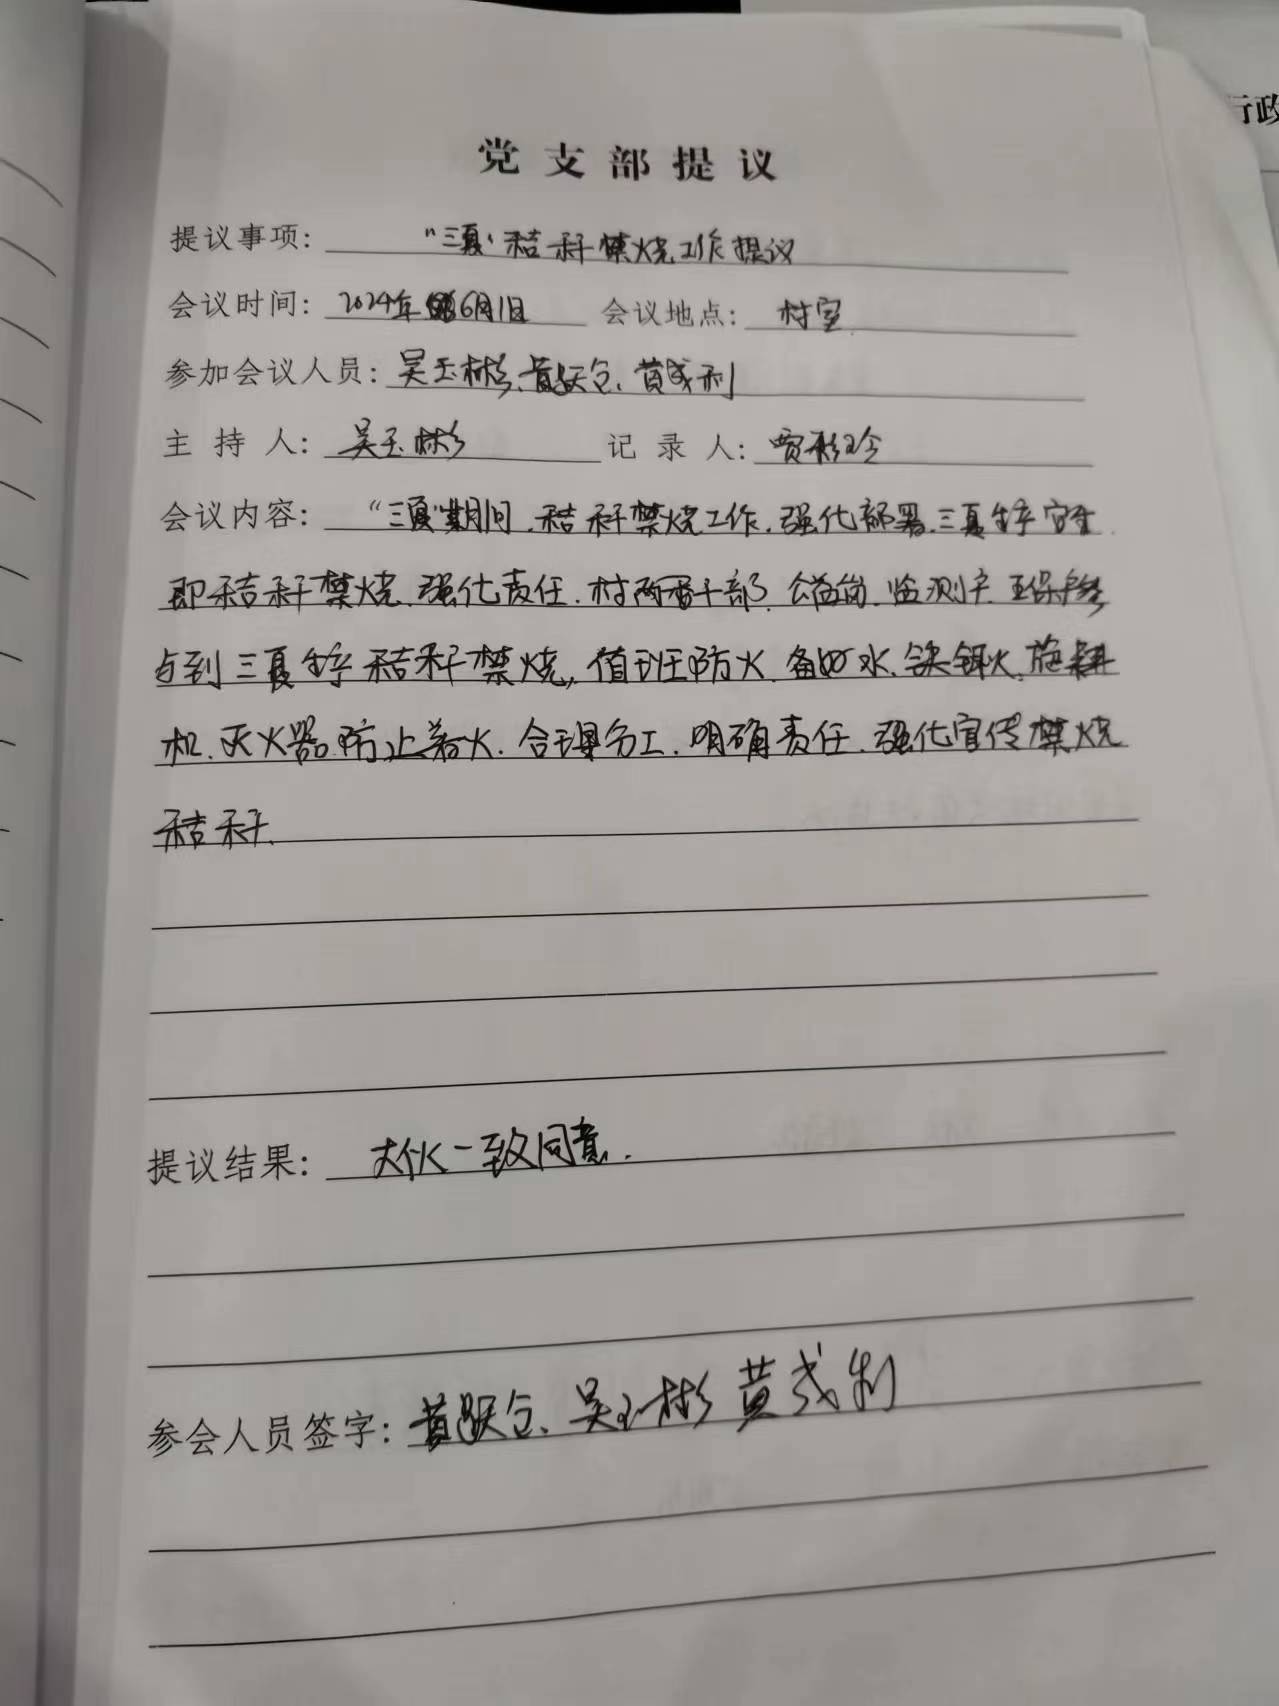 行政
党支部提议
提议事项: "三夏"秸秆禁烧工作提议
会议时间: 2024年6月1日 会议地点: 村室
参加会议人员: 吴玉彬、黄跃仓、黄成利
主持人: 吴玉彬 记录人: 贾彩玲
会议内容: "三夏"期间,秸秆禁烧工作,强化部署,三夏
即秸秆禁烧,强化责任,村两委干部、公益岗、监测户、
到三夏 秸秆禁烧,值班防火,备好水、铁锹、旋耕
机、灭火器,防止着火,合理分工,明确责任,强化宣传禁烧
秸秆。
提议结果: 大伙一致同意.
参会人员签字: 黄跃仓、吴玉彬 黄成利